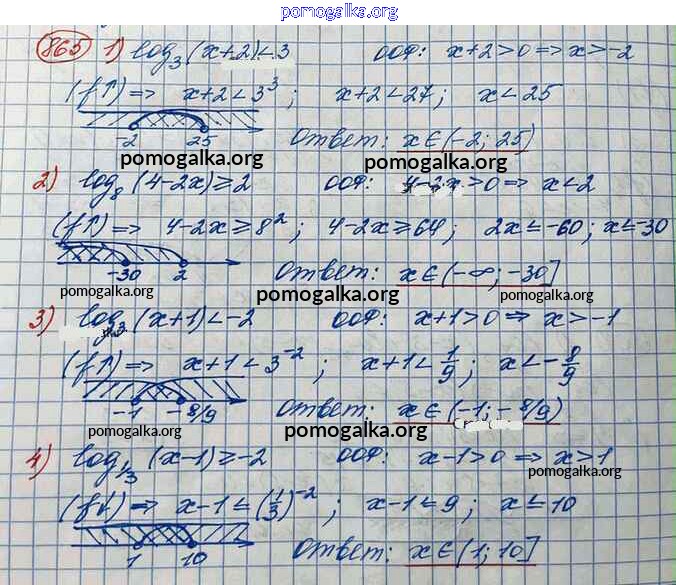 pomogalka.org
865 1) log₃(x+2)<3 ООФ: x+2>0 => x>-2
(f↑) => x+2<3³; x+2<27; x<25
-2 25 Ответ: x∈(-2; 25)
pomogalka.org pomogalka.org
2) log₈(4-2x)≥2 ООФ: 4-2x>0 => x<2
(f↑) => 4-2x≥8²; 4-2x≥64; 2x≤-60; x≤-30
-30 2 Ответ: x∈(-∞; -30]
pomogalka.org pomogalka.org pomogalka.org
3) log₃(x+1)<-2 ООФ: x+1>0 => x>-1
(f↑) => x+1<3⁻²; x+1<1/9; x<-8/9
-1 -8/9 Ответ: x∈(-1; -8/9)
pomogalka.org pomogalka.org
4) log₁/₃(x-1)≥-2 ООФ: x-1>0 => x>1
pomogalka.org
(f↓) => x-1≤(1/3)⁻²; x-1≤9; x≤10
1 10 Ответ: x∈(1; 10]